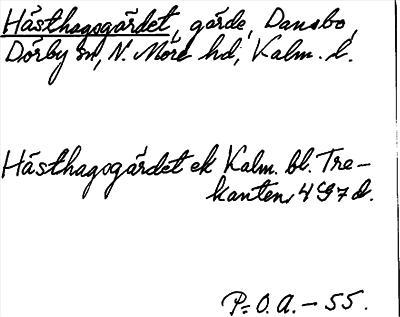 Hästhagogärdet, gärde, Dansbo,
Dörby sn, N. Möre hd, Kalm. l.
Hästhagogärdet ek Kalm. bl. Tre-
kanten, 4 9 7 d.
P:O.A. - 55.